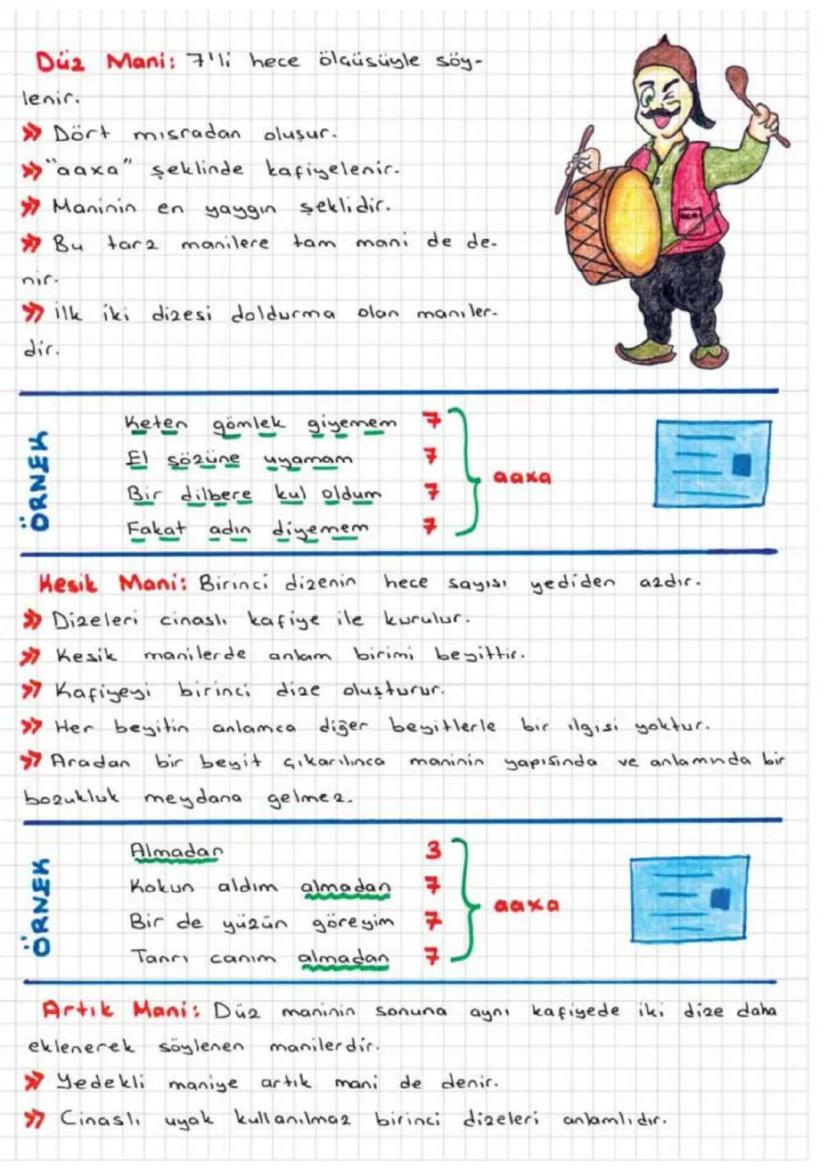 Düz Mani: 7'li hece ölçüsüyle söy-
lenir.
» Dört mısradan oluşur.
» "aaxa" şeklinde kafiyelenir.
» Maninin en yaygın şeklidir.
» Bu tarz manilere tam mani de de-
nir.
» İlk iki dizesi doldurma olan maniler-
dir.
ÖRNEK
Keten gömlek giyemem 7
El sözüne uyamam 7
Bir dilbere kul oldum 7
Fakat adın diyemem 7
aaxa
Kesik Mani: Birinci dizenin hece sayısı yediden azdır.
» Dizeleri cinaslı kafiye ile kurulur.
» Kesik manilerde anlam birimi beyittir.
» Kafiyeyi birinci dize oluşturur.
» Her beyitin anlamca diğer beyitlerle bir ilgisi yoktur.
» Aradan bir beyit çıkarılınca maninin yapısında ve anlamında bir
bozukluk meydana gelmez.
ÖRNEK
Almadan 3
Kokun aldım almadan 7
Bir de yüzün göreyim 7
Tanrı canım almadan 7
aaxa
Artık Mani: Düz maninin sonuna aynı kafiyede iki dize daha
eklenerek söylenen manilerdir.
» Yedekli maniye artık mani de denir.
» Cinaslı uyak kullanılmaz birinci dizeleri anlamlıdır.